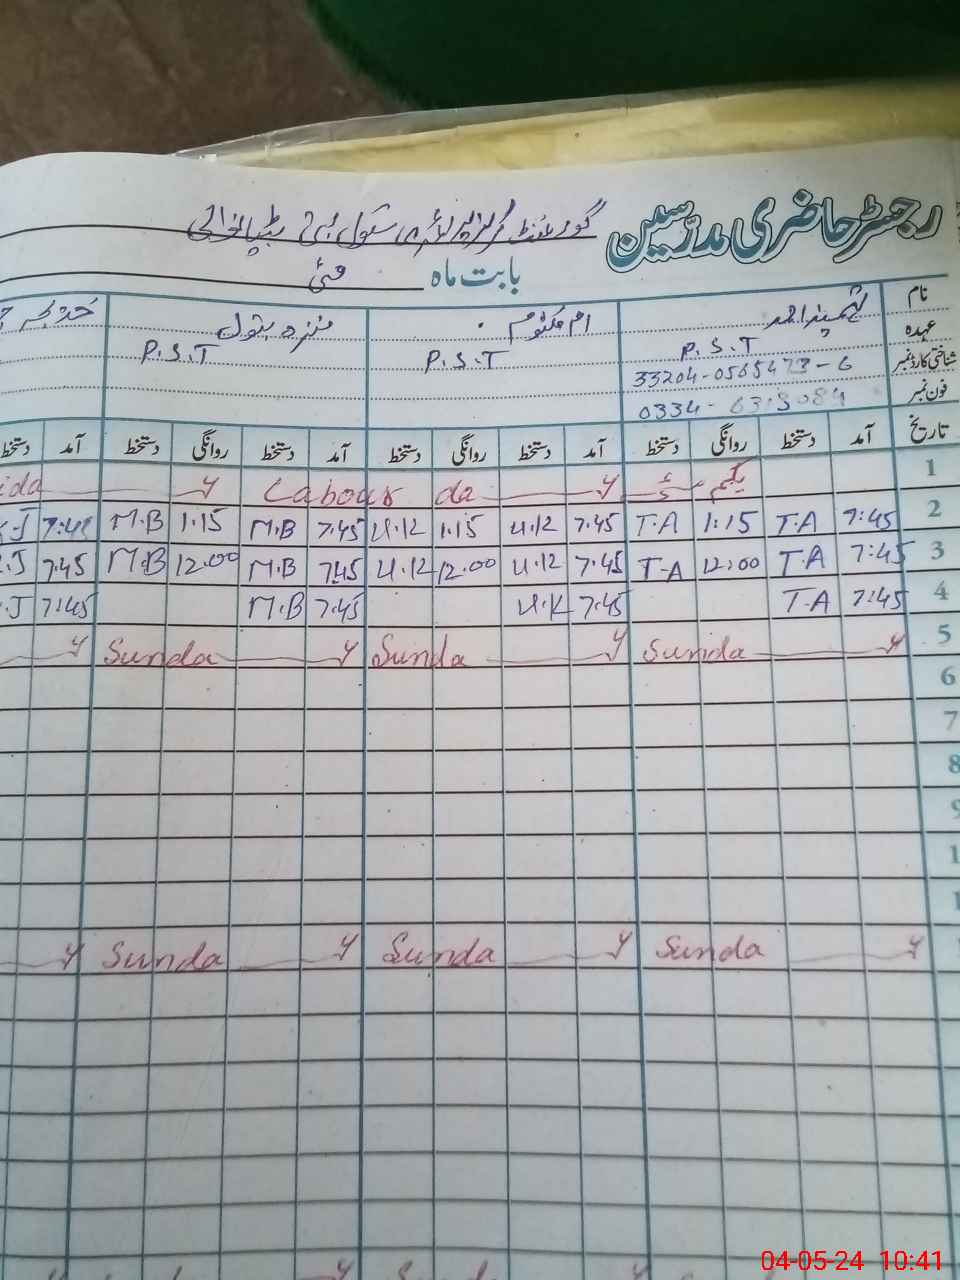 رجسٹر حاضری مدرسین گورنمنٹ گرلز پرائمری سکول
بابت ماہ مئی
نام ام مکتوم منزہ بتول
عہدہ P.S.T P.S.T P.S.T
شناختی کارڈ نمبر 33204-0565473-6
فون نمبر 0334-
تاریخ آمد دستخط روانگی دستخط آمد دستخط روانگی دستخط آمد دستخط روانگی دستخط آمد دستخط
1 یکم مئی Labour da y ida y
2 7:45 T.A 1:15 T.A 7.45 U.K 1.15 U.K 7.45 M.B 1.15 M.B 7:45 .J
3 7:45 T.A 12:00 T.A 7.45 U.K 12.00 U.K 7.45 M.B 12.00 M.B 7.45 .J
4 7:45 T.A 7.45 U.K 7.45 M.B 7:45 .J
5 Sunda y Sunda y Sunda y y
6
7
8
9
1
1
Sunda y Sunda y Sunda y y
04-05-24 10:41